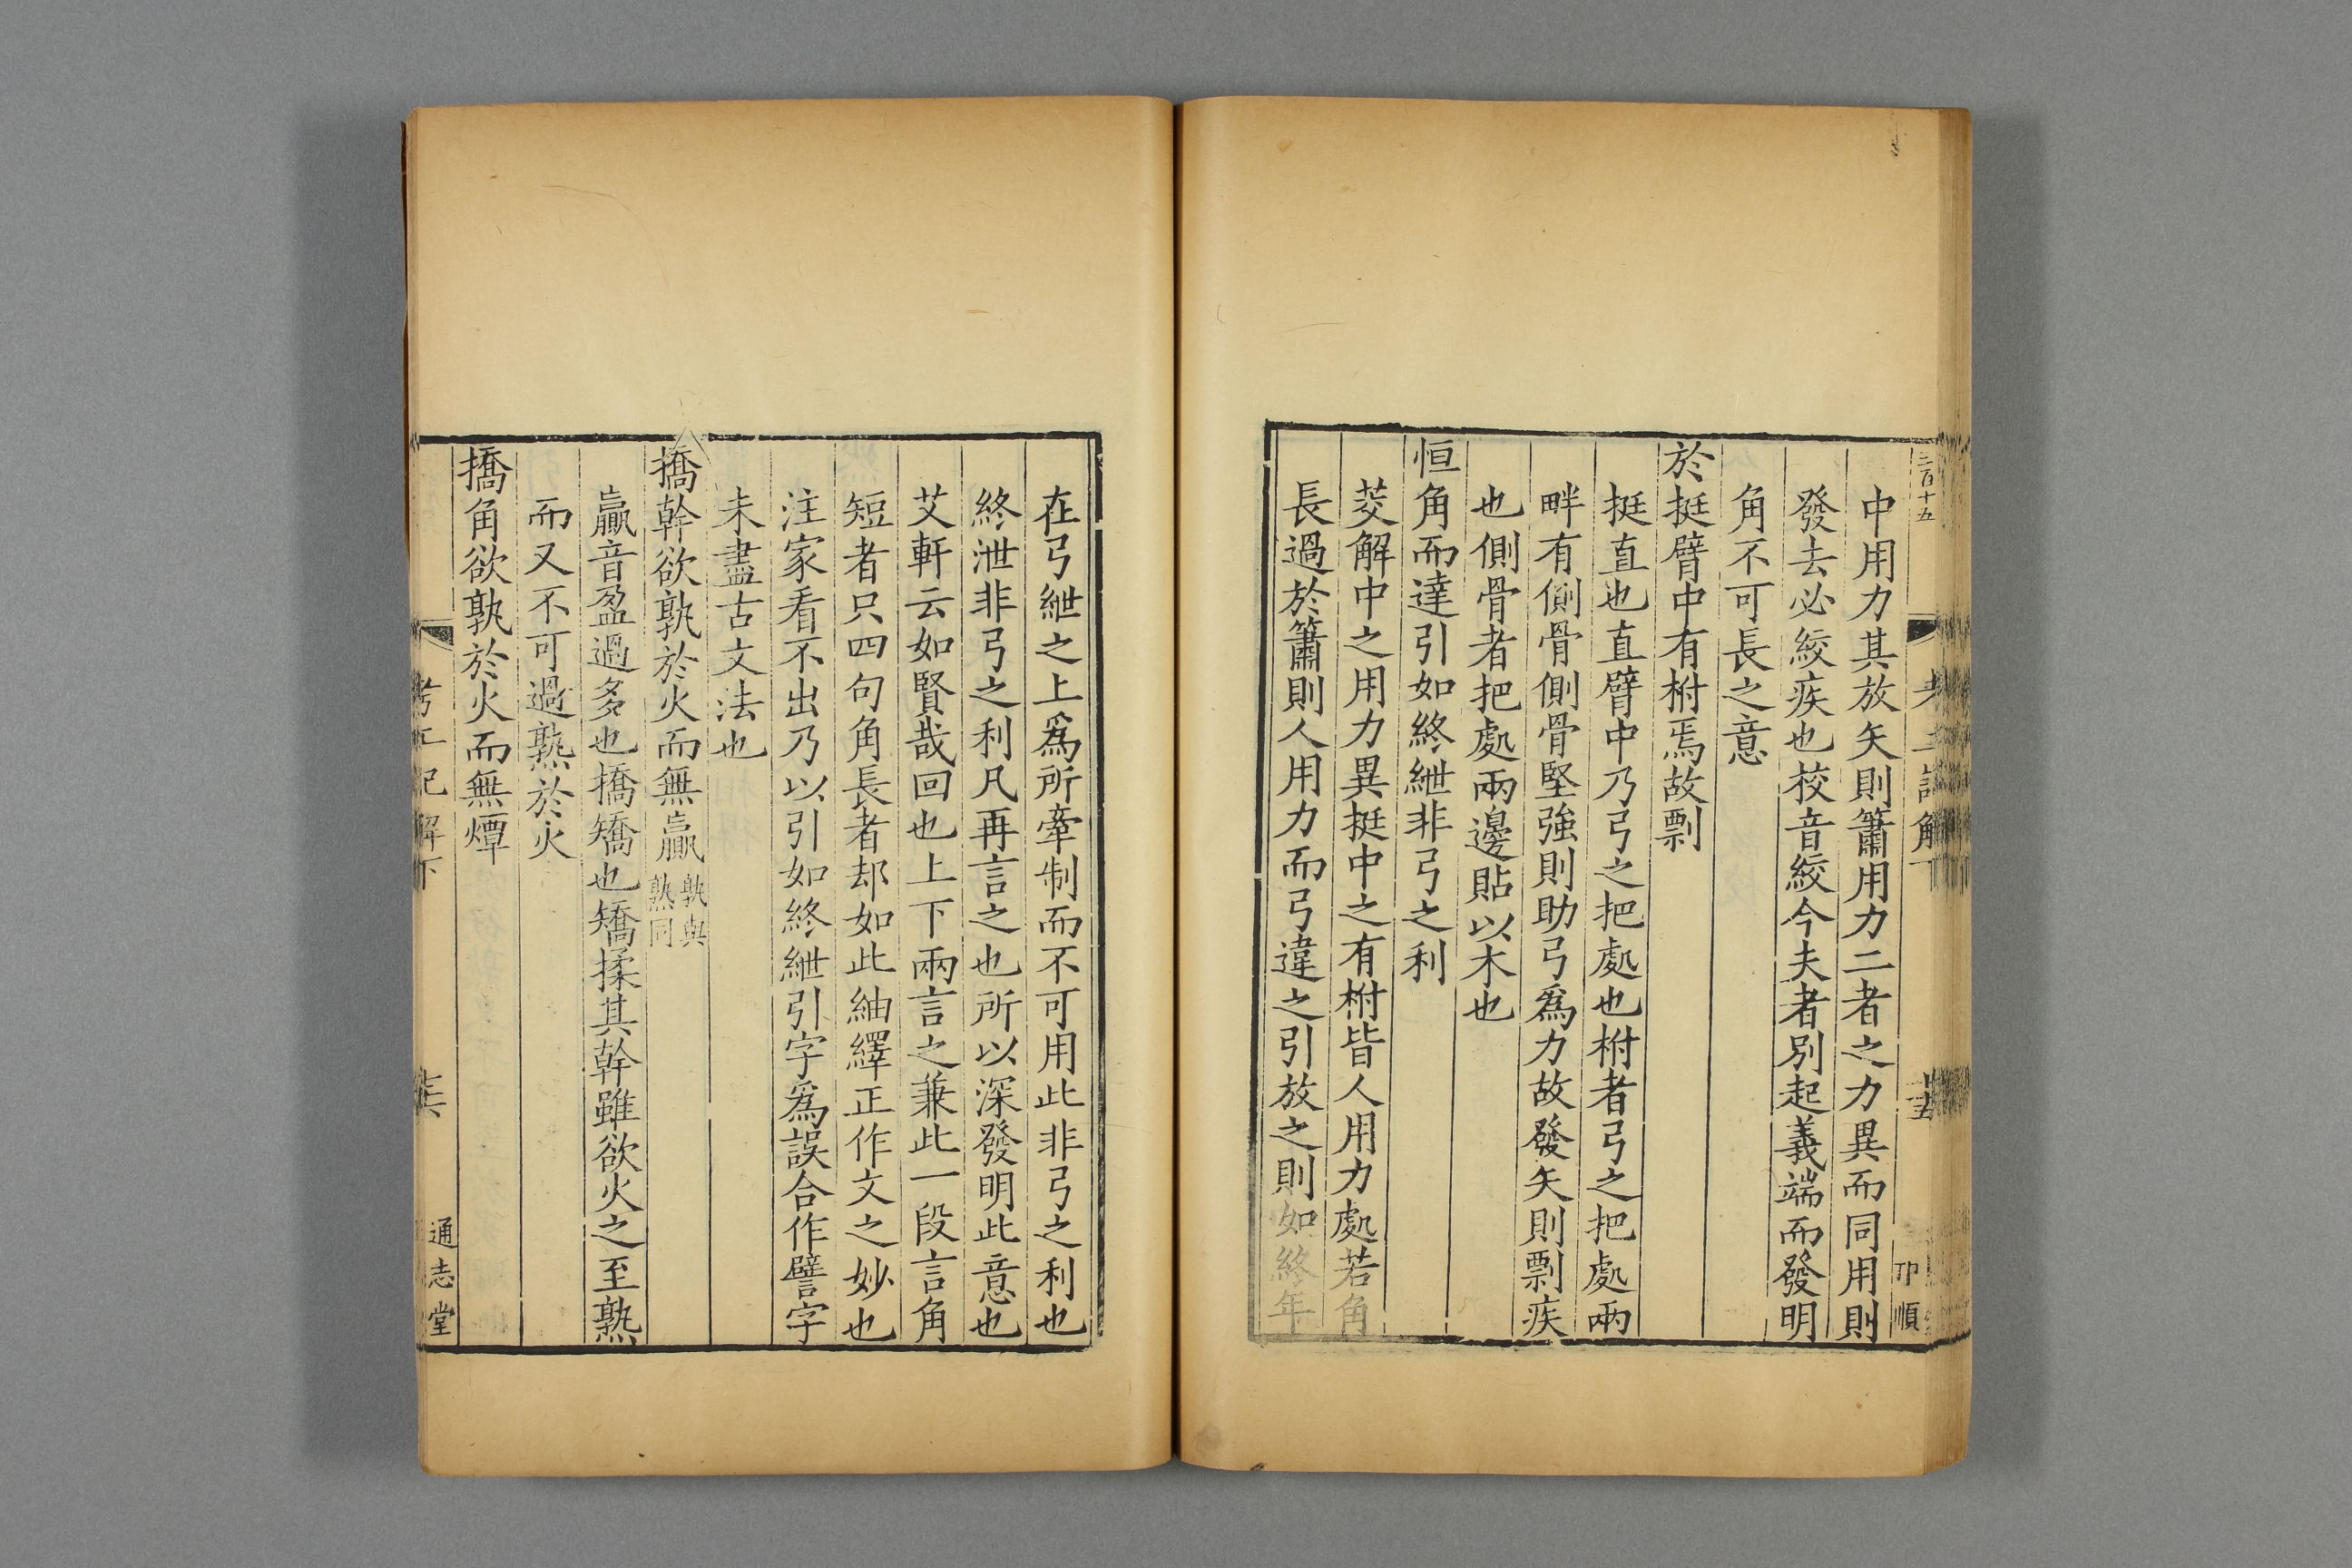 二百十五
中用力其放矢則簫用力二者之力異而同用則
發去必絞疾也校音絞今夫者別起義端而發明
角不可長之意
於挺臂中有柎焉故剽
挺直也直臂中乃弓之把處也柎者弓之把處兩
畔有側骨側骨堅強則助弓爲力故發矢則剽疾
也側骨者把處兩邊貼以木也
恒角而達引如終紲非弓之利
茭解中之用力異挺中之有柎皆人用力處若角
長過於簫則人用力而弓違之引放之則如終年
在弓紲之上爲所牽制而不可用此非弓之利也
終泄非弓之利凡再言之也所以深發明此意也
艾軒云如賢哉回也上下兩言之兼此一段言角
短者只四句角長者却如此紬繹正作文之妙也
注家看不出乃以引如終紲引字爲誤合作譬字
未盡古文法也
撟幹欲孰於火而無贏孰與熟同
贏音盈過多也撟矯也矯揉其幹雖欲火之至熟
而又不可過熟於火
撟角欲孰於火而無燂
考工記解下
通志堂